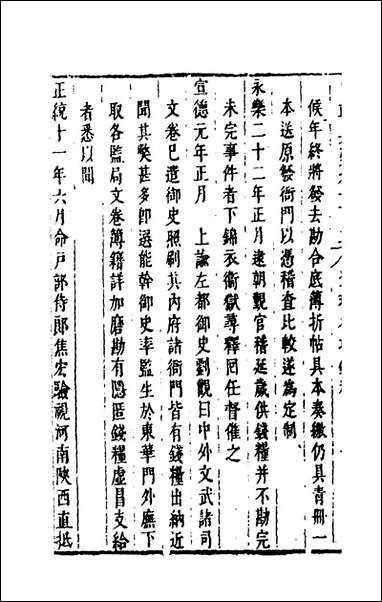 候年終將發去勘合底簿折帖具本奏繳仍具青冊一
本送原發衙門以憑稽查比較遂為定制
永樂二十二年正月逮朝覲官稽延歲供錢糧并不勘完
未完事件者下錦衣衞獄尋釋囘任督催之
宣德元年正月　上諭左都御史劉觀曰中外文武諸司
文卷已遣御史照刷其內府諸衙門皆有錢糧出納近
聞其獘甚多即選能幹御史率監生於東華門外廡下
取各監局文卷簿籍詳加磨勘有隱匿錢糧虛冒支給
者悉以聞
正統十一年六月命戶部侍郞焦宏驗視河南陝西直抵